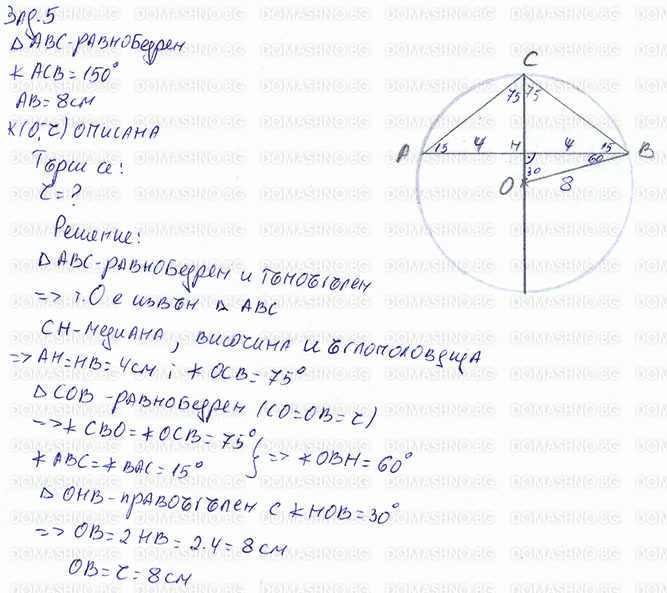 Зад.5
Δ ABC-равнобедрен
∢ ACB = 150°
AB = 8 см
K(O; r) описана
Търси се:
r = ?
Решение:
Δ ABC-равнобедрен и тъпоъгълен
=> т.O е извън Δ ABC
CH-медиана, височина и ъглополовяща
=> AH=HB=4см; ∢ OCB = 75°
Δ COB-равнобедрен (CO=OB=r)
=> ∢ CBO=∢ OCB = 75°
∢ ABC=∢ BAC = 15° } => ∢ OBH = 60°
Δ OHB-правоъгълен с ∢ HOB = 30°
=> OB = 2 HB = 2.4 = 8 см
OB = r = 8 см
C
75 75
A 15 4 H 4 15 B
60
30
O 8
DOMASHNO.BG